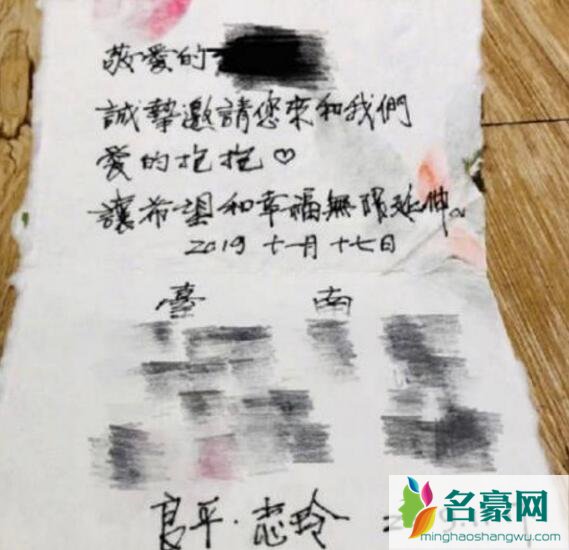 敬愛的
誠摯邀請您來和我們
愛的抱抱♡
讓希望和幸福無限延伸。
2019 十一月 十七日
臺 南
良平·志玲
名豪网
minghaoshangwu.com